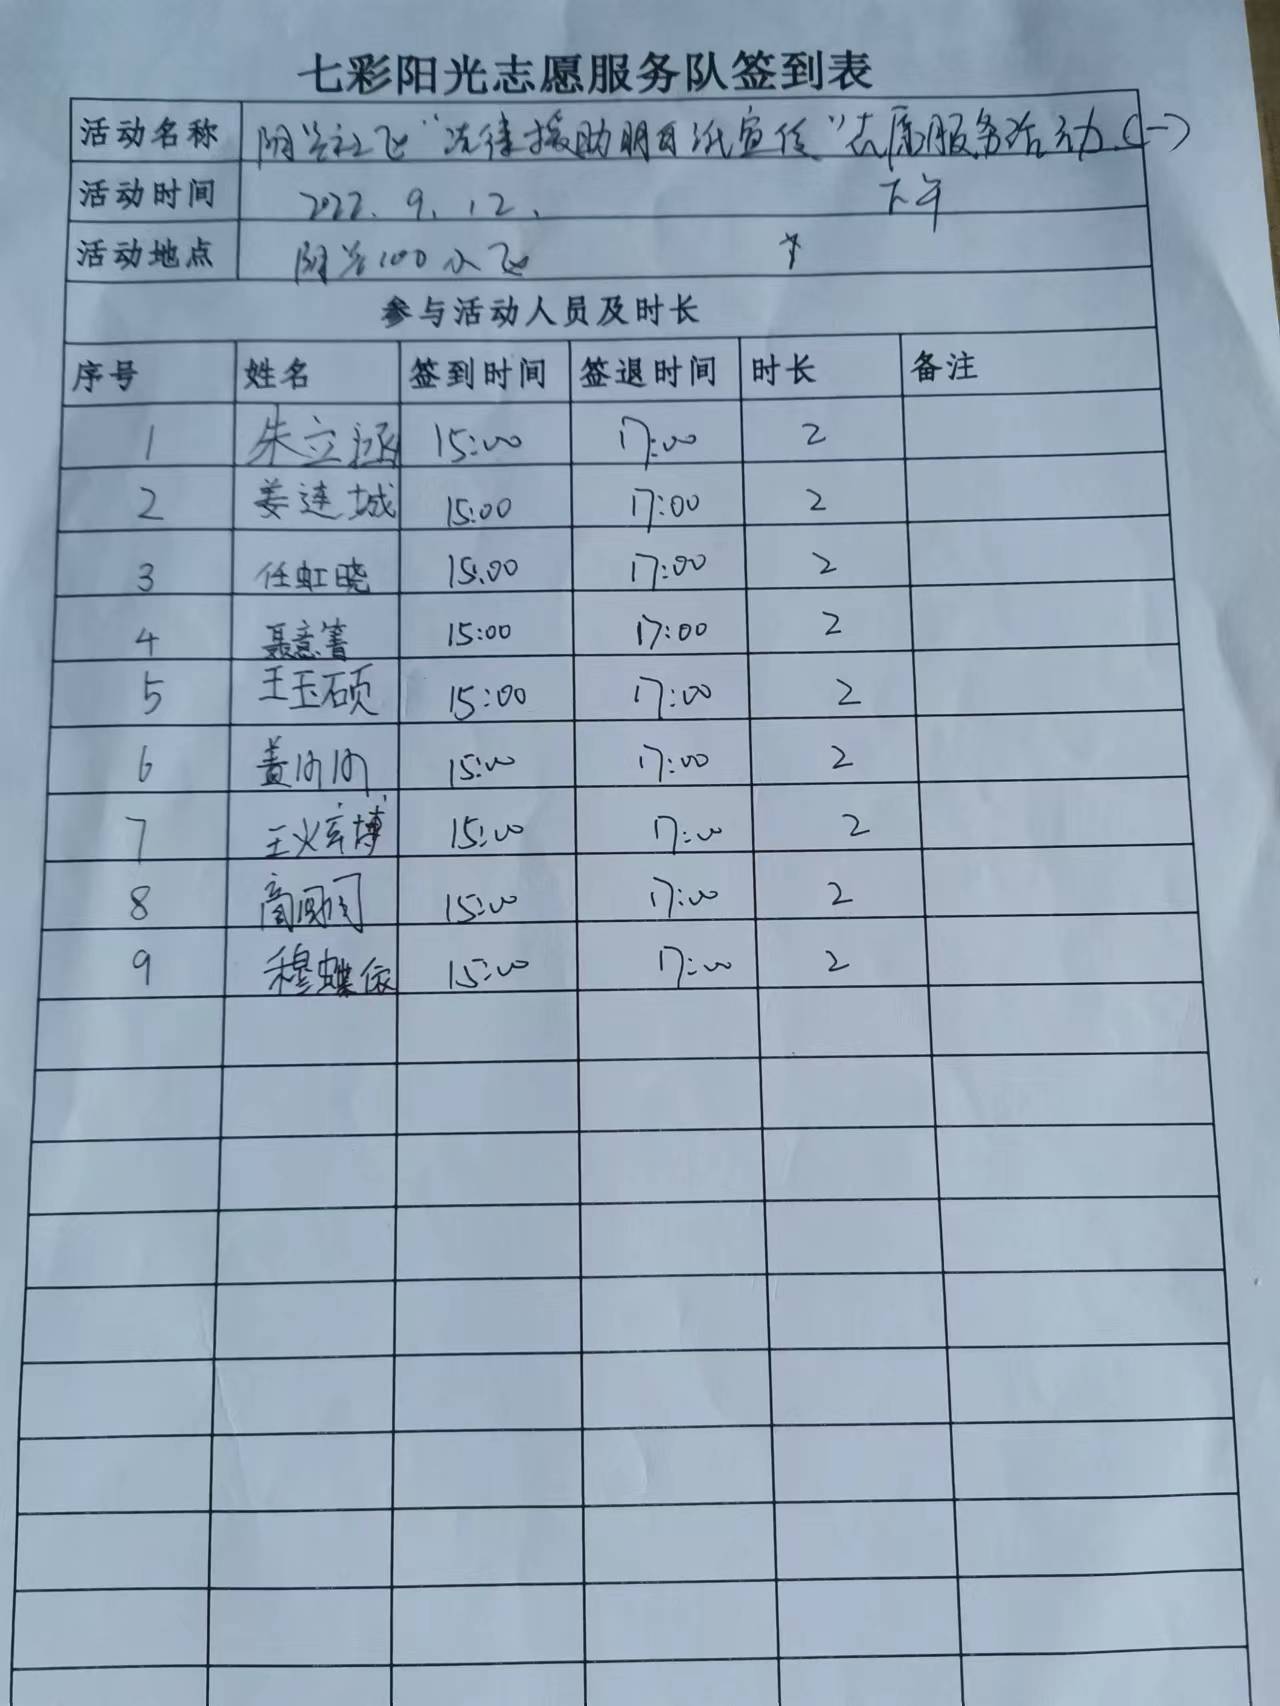 七彩阳光志愿服务队签到表
活动名称 阳光社区“法律援助明白纸宣传”志愿服务活动(一)
活动时间 2022.9.12. 下午
活动地点 阳光100小区
参与活动人员及时长
序号 姓名 签到时间 签退时间 时长 备注
1 朱立涵 15:00 17:00 2
2 姜连城 15:00 17:00 2
3 任虹晓 15:00 17:00 2
4 聂意菁 15:00 17:00 2
5 王玉硕 15:00 17:00 2
6 15:00 17:00 2
7 15:00 17:00 2
8 15:00 17:00 2
9 穆蝶依 15:00 17:00 2